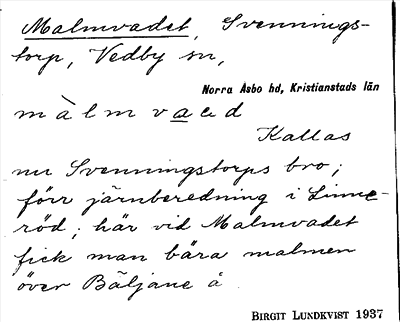 Malmvadet, Svennings-
torp, Vedby sn,
Norra Åsbo hd, Kristianstads län
màlmvaed
Kallas
nu Svenningstorps bro;
förr järnberedning i Linne-
röd; här vid Malmvadet
fick man bära malmen
över Bäljane å
BIRGIT LUNDKVIST 1937